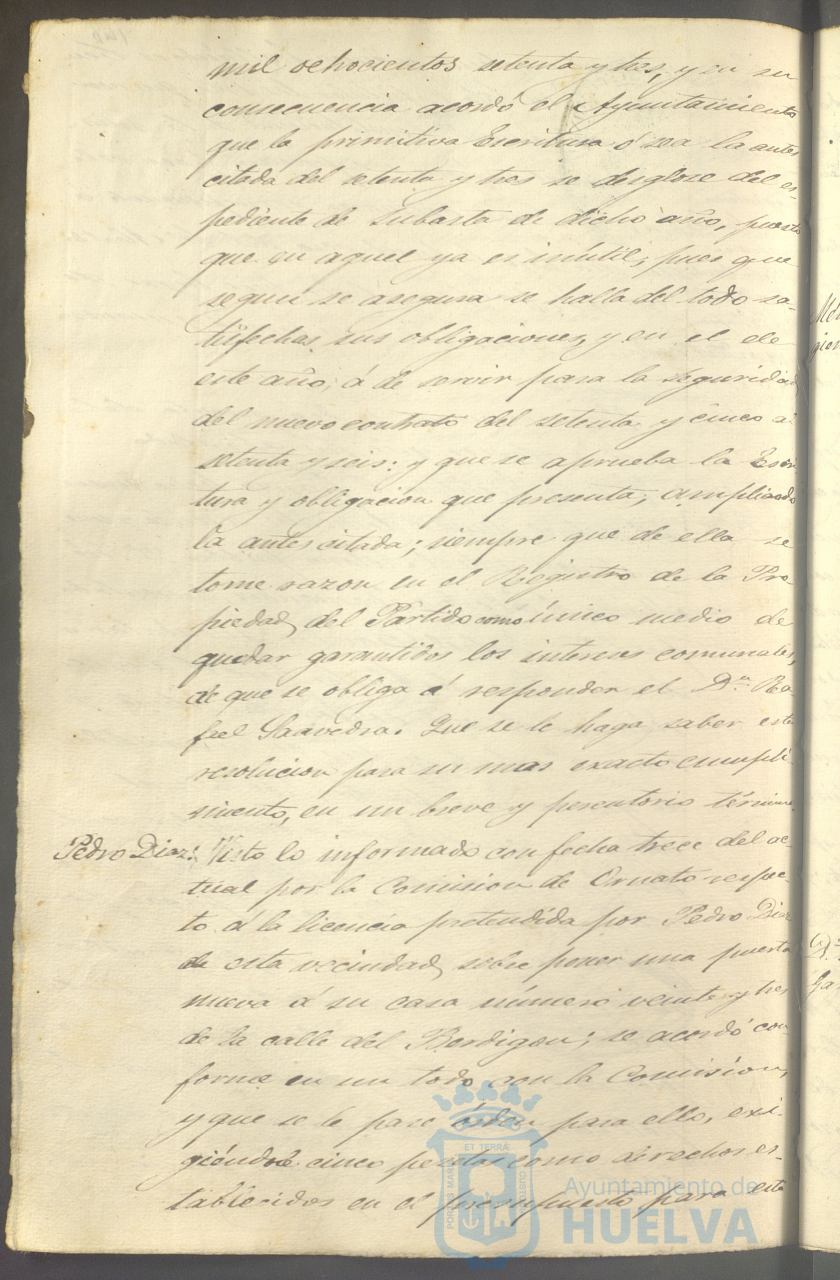 mil ochocientos setenta y tres, y en su
consecuencia acordó el Ayuntamiento
que la primitiva Escritura ó sea la antes
citada del setenta y tres se desglose del es-
pediente de subasta de dicho año, puesto
que en aquel ya es inútil, pues que
segun se asegura se halla del todo sa-
tisfechas sus obligaciones, y en el de
este año, á de servir para la seguridad
del nuevo contrato del setenta y cinco al
setenta y seis: y que se aprueba la Escri
tura y obligacion que presenta, ampliando
la antes citada; siempre que de ella se
tome razon en el Registro de la Pro-
piedad del Partido como único medio de
quedar garantidos los intereses comunales,
de que se obliga á responder el Dn. Ra
fael Saavedra. Que se le haga saber esta
resolucion para su mas exacto cumpli-
miento, en un breve y perentorio término.
Pedro Diaz: Visto lo informado con fecha trece del ac-
tual por la Comision de Ornato respec-
to á la licencia pretendida por Pedro Diaz
de esta vecindad, sobre poner una puerta
nueva á su casa número veinte y tres
de la calle del Berdigon; se acordó con-
forme en un todo con la Comision,
y que se le pase órden para ello, exi-
giéndole cinco pesetas como derechos es-
tablecidos en el presupuesto para este
PORTUS MARIS ET TERRÆ CUSTODIA
Ayuntamiento de
HUELVA